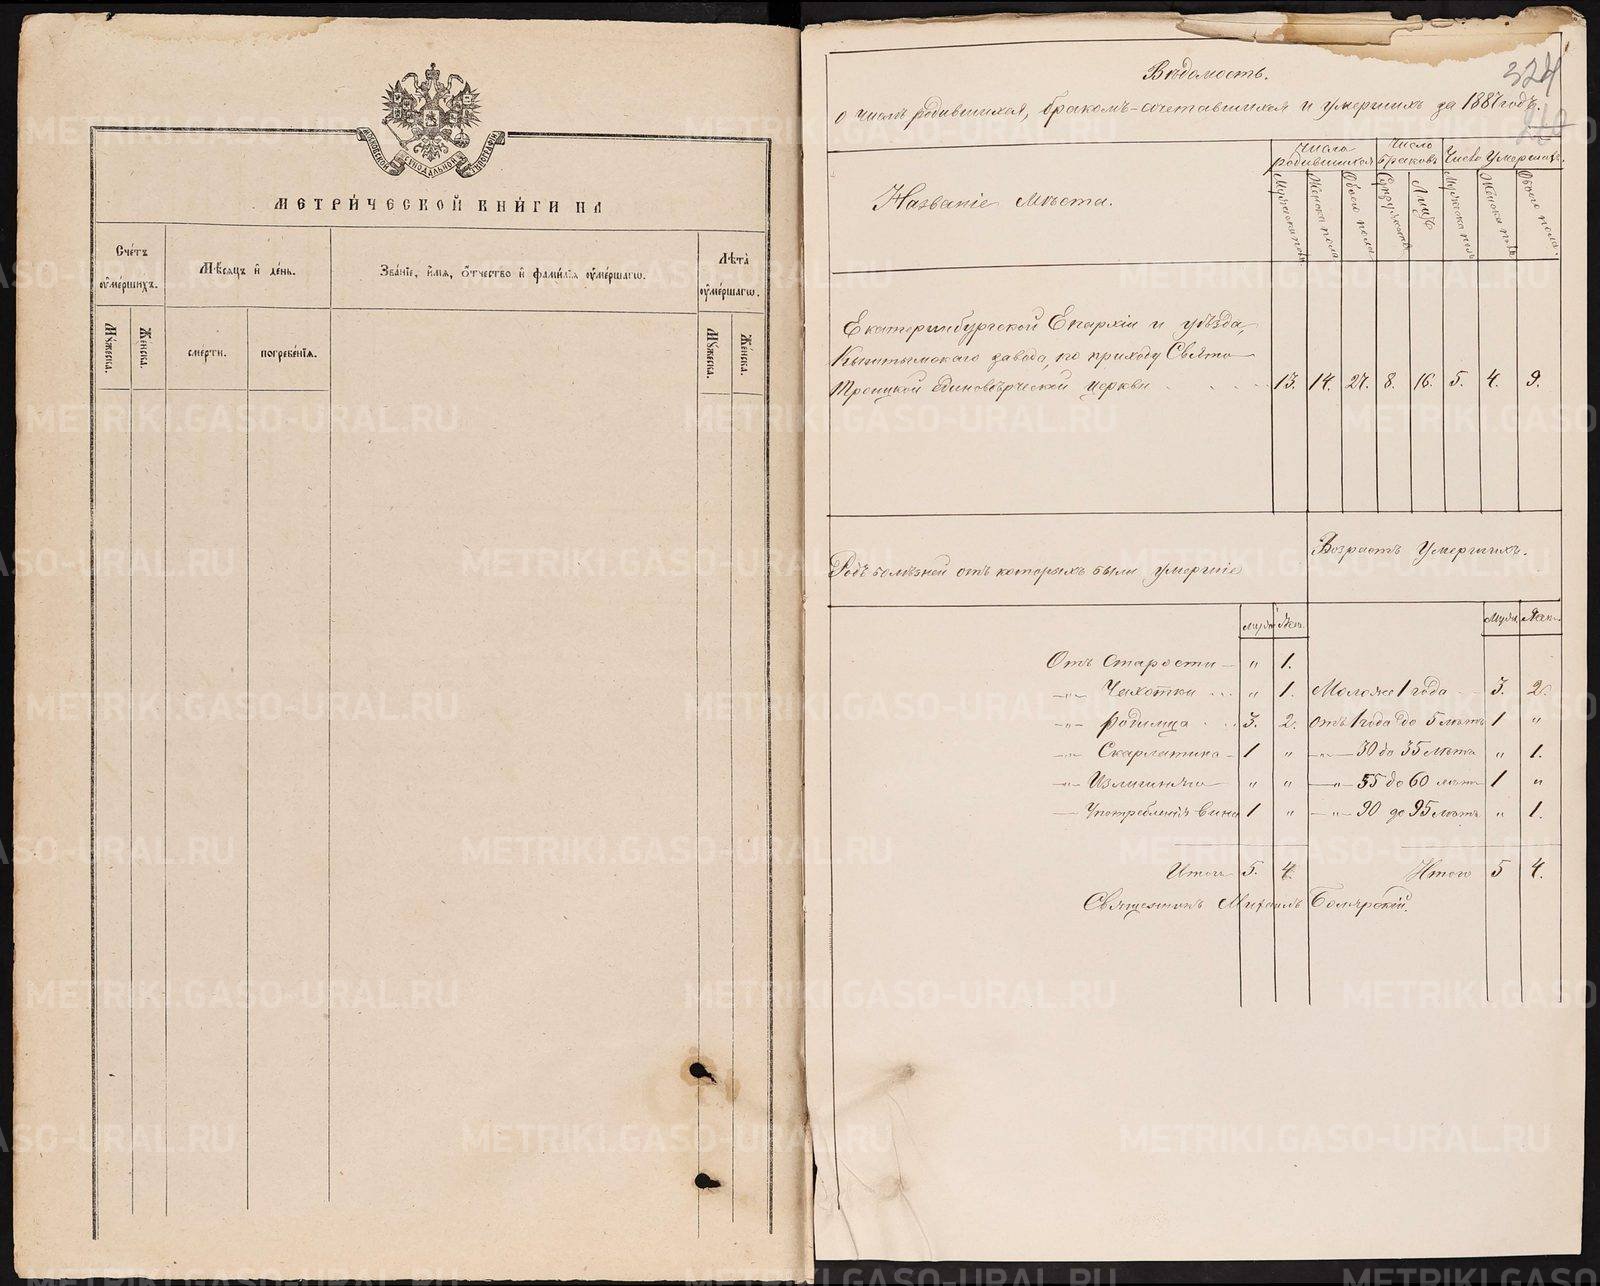 МОСКОВСКОЙ СѴНОДАЛЬНОЙ ТИПОГРАФІИ
МЕТРИ́ЧЕСКОЙ КНИ́ГИ НА
Сче́тъ ᲂу҆ме́ршихъ.
Мѣ́сяцъ и҆ де́нь.
Зва́нїе, и҆́мѧ, ѻ҆́тчество и҆ фами́лїѧ ᲂу҆ме́ршагѡ.
Лѣ́та ᲂу҆ме́ршагѡ.
Мꙋ́жеска.
Же́нска.
сме́рти.
погребе́нїѧ.
Мꙋ́жеска.
Же́нска.
324
Вѣдомость.
о числѣ родившихся, бракомъ-сочетавшихся и умершихъ за 1887 годъ.
Названіе мѣста.
Число родившихся
Число браковъ
Число умершихъ.
Мужеска пола
Женска пола
Обоего пола
Супружествъ
Лицъ
Мужеска пола
Женска пола
Обоего пола.
Екатеринбургской Епархіи и уѣзда,
Кыштымскаго завода, по приходу Свято
Троицкой единовѣрческой церкви 13. 14. 27. 8. 16. 5. 4. 9.
Родъ болѣзней отъ которыхъ были умершіе
Возрастъ умершихъ.
муж. жен. муж. жен.
Отъ старости — „ 1.
—„— Чахотки „ 1. Моложе 1 года 3. 2.
—„— родимца 3. 2. отъ 1 года до 5 лѣтъ 1 „
—„— Скарлатина — 1 „ —„— 30 до 35 лѣтъ „ 1.
—„— Излишняго „ „ —„— 55 до 60 лѣтъ 1 „
— употребленія вина 1 „ —„— 90 до 95 лѣтъ „ 1.
Итого 5. 4. Итого 5 4.
Священникъ Михаилъ
METRIKI.GASO-URAL.RU